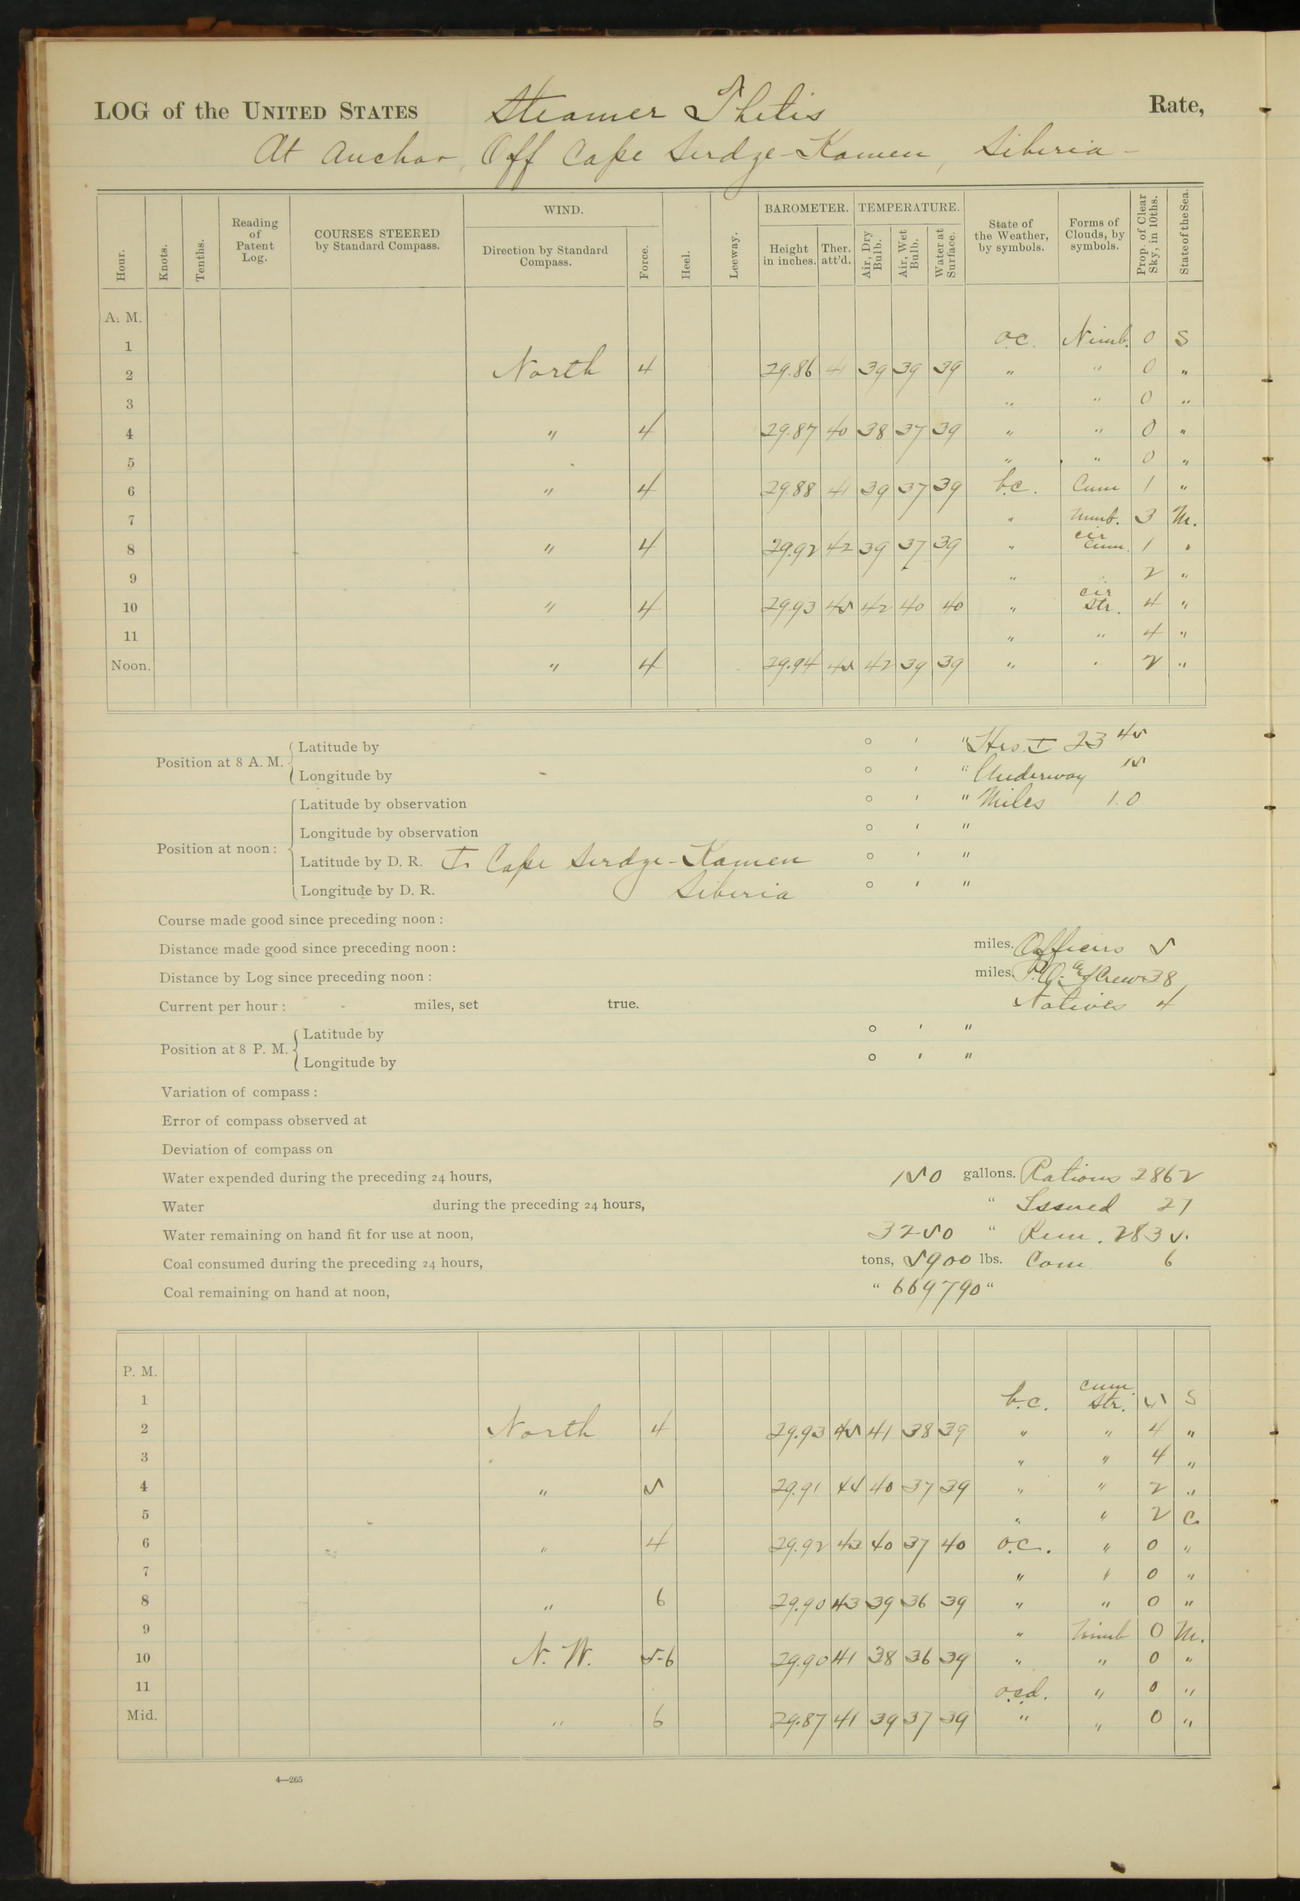 LOG of the UNITED STATES Steamer Thetis Rate,
At Anchor, Off Cape Serdze-Kamen, Siberia-
Hour. Knots. Tenths. Reading of Patent Log. COURSES STEERED by Standard Compass. WIND. Direction by Standard Compass. Force. Heel. Leeway. BAROMETER. Height in inches. Ther. att'd. TEMPERATURE. Air, Dry Bulb. Air, Wet Bulb. Water at Surface. State of the Weather, by symbols. Forms of Clouds, by symbols. Prop. of Clear Sky, in 10ths. State of the Sea.
A. M.
1 o.c. Nimb. 0 S
2 North 4 29.86 41 39 39 39 " " 0 "
3 " " 0 "
4 " 4 29.87 40 38 37 39 " " 0 "
5 " " 0 "
6 " 4 29.88 41 39 37 39 b.c. Cum 1 "
7 " Nimb. 3 M.
8 " 4 29.92 42 39 37 39 " cir cum. 1 "
9 " 2 "
10 " 4 29.93 45 42 40 40 " cir Str. 4 "
11 " " 4 "
Noon. " 4 29.94 45 42 39 39 " " 2 "
Position at 8 A. M. Latitude by ° ' " Hrs. I 23 45
Longitude by ° ' " Underway 15
Position at noon: Latitude by observation ° ' " Miles 1.0
Longitude by observation ° ' "
Latitude by D. R. Cape Serdze-Kamen ° ' "
Longitude by D. R. Siberia ° ' "
Course made good since preceding noon:
Distance made good since preceding noon: miles. Officers 5
Distance by Log since preceding noon: miles. P.O. & Crew 38
Current per hour: miles, set true. Natives 4
Position at 8 P. M. Latitude by ° ' "
Longitude by ° ' "
Variation of compass:
Error of compass observed at
Deviation of compass on
Water expended during the preceding 24 hours, 150 gallons. Rations 2862
Water during the preceding 24 hours, " Issued 27
Water remaining on hand fit for use at noon, 3250 " Rem. 2835.
Coal consumed during the preceding 24 hours, tons, 5900 lbs. Com 6
Coal remaining on hand at noon, " 669790 "
P. M.
1 b.c. cum. Str. 5 S
2 North 4 29.93 45 41 38 39 " " 4 "
3 " " 4 "
4 " 5 29.91 44 40 37 39 " " 2 "
5 " " 2 C
6 " 4 29.92 43 40 37 40 o.c. " 0 "
7 " " 0 "
8 " 6 29.90 43 39 36 39 " " 0 "
9 " Nimb 0 M.
10 N. W. 5-6 29.90 41 38 36 39 " " 0 "
11 o.c.d. " 0 "
Mid. " 6 29.87 41 39 37 39 " " 0 "
4—265